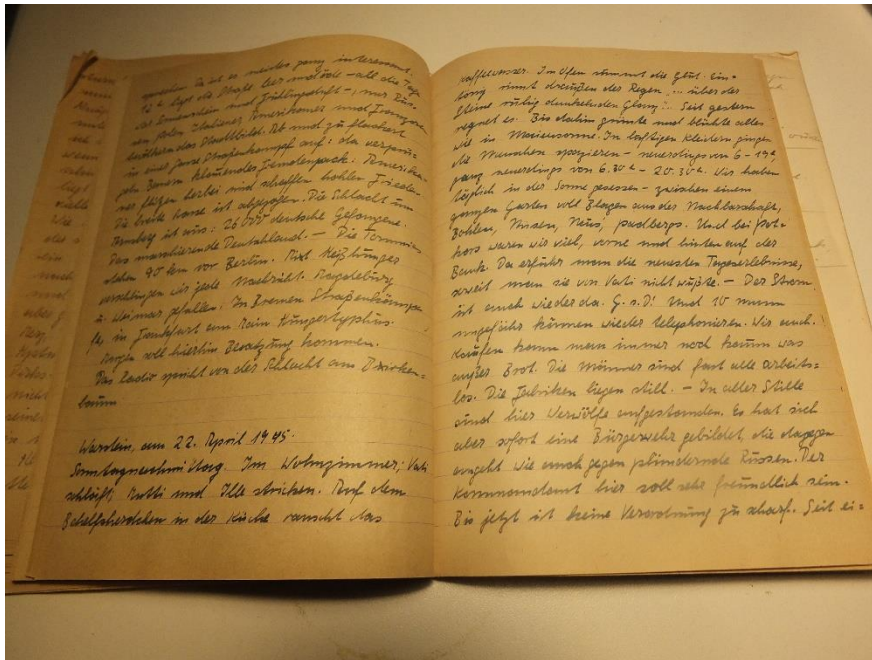 sprechen. Da ist es meistens ganz interessant.
12 h liegt die Straße leer und öde - all die Tage
bei Sonnenschein und Frühlingsluft -, nur Rus-
sen, Polen, Italiener, Amerikaner und Franzosen
bevölkern das Stadtbild. Ab und zu flackert
in einer Ferne Straßenkampf auf: da
klauendes Amerika-
ner flitzen herbei und schaffen hohlen Frieden.
Die breite Masse ist abgezogen. Die Schlacht um
ist aus: 26 000 deutsche Gefangene.
Das marschierende Deutschland. — Die
stehen 90 km vor Berlin. Mit Heißhunger
verschlingen wir jede Nachricht. Magdeburg
u. Weimar gefallen. In Bremen Straßenkämp-
fe, in Frankfurt am Main Hungertyphus.
Morgen soll hierhin Besatzung kommen.
Das Radio spricht von der Schlacht am Birken-
baum.
Werdein, am 22. April 1945.
Sonntagnachmittag. Im Wohnzimmer; Vati
schläft, Mutti und Ille stricken. Auf dem
Behelfsherdchen in der Küche rauscht das
Kaffeewasser. Im Ofen summt die Glut. Ein-
tönig rinnt draußen der Regen, „... über der
Steine ruhig dunkelnden Glanz“... Seit gestern
regnet es. Bis dahin grünte und blühte alles
wie in Maiensonne. In luftigen Kleidern gingen
die Menschen spazieren - neuerdings von 6 - 19 h,
ganz neuerdings von 6.30 h - 20.30 h. Wir haben
täglich in der Sonne gesessen - zwischen einem
ganzen Garten voll Blagen aus der Nachbarschaft,
Bohlen, Nissen, Neus, Padbergs. Und bei
waren wir viel, vorne und hinten auf der
Bank. Da erfuhr man die neuesten Tageserlebnisse,
soweit man sie von Vati nicht wußte. — Der Strom
ist auch wieder da. G. s. D! Und 10 mann
ungefähr können wieder telephonieren. Wir auch.
Kaufen kann man immer noch kaum was
außer Brot. Die Männer sind fast alle arbeits-
los. Die Fabriken liegen still. — In aller Stille
sind hier Werwölfe aufgestanden. Es hat sich
aber sofort eine Bürgerwehr gebildet, die dagegen
angeht wie auch gegen plündernde Russen. Der
Kommandant hier soll sehr freundlich sein.
Bis jetzt ist keine Verordnung zu scharf. Seit ei-